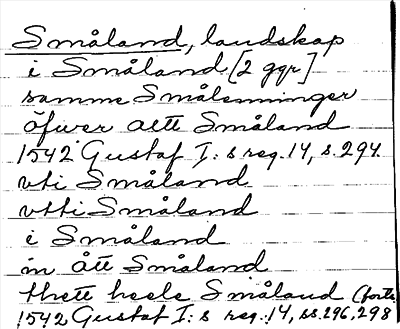 Småland, landskap
i Småland [2 ggr]
samme Smålenninger
öfwer altt Småland
1542 Gustaf I:s reg. 14, s. 294.
vti Småland
vtti Småland
i Småland
in ått Småland
thett heele Småland (forts.
1542 Gustaf I:s reg. 14, ss. 296, 298